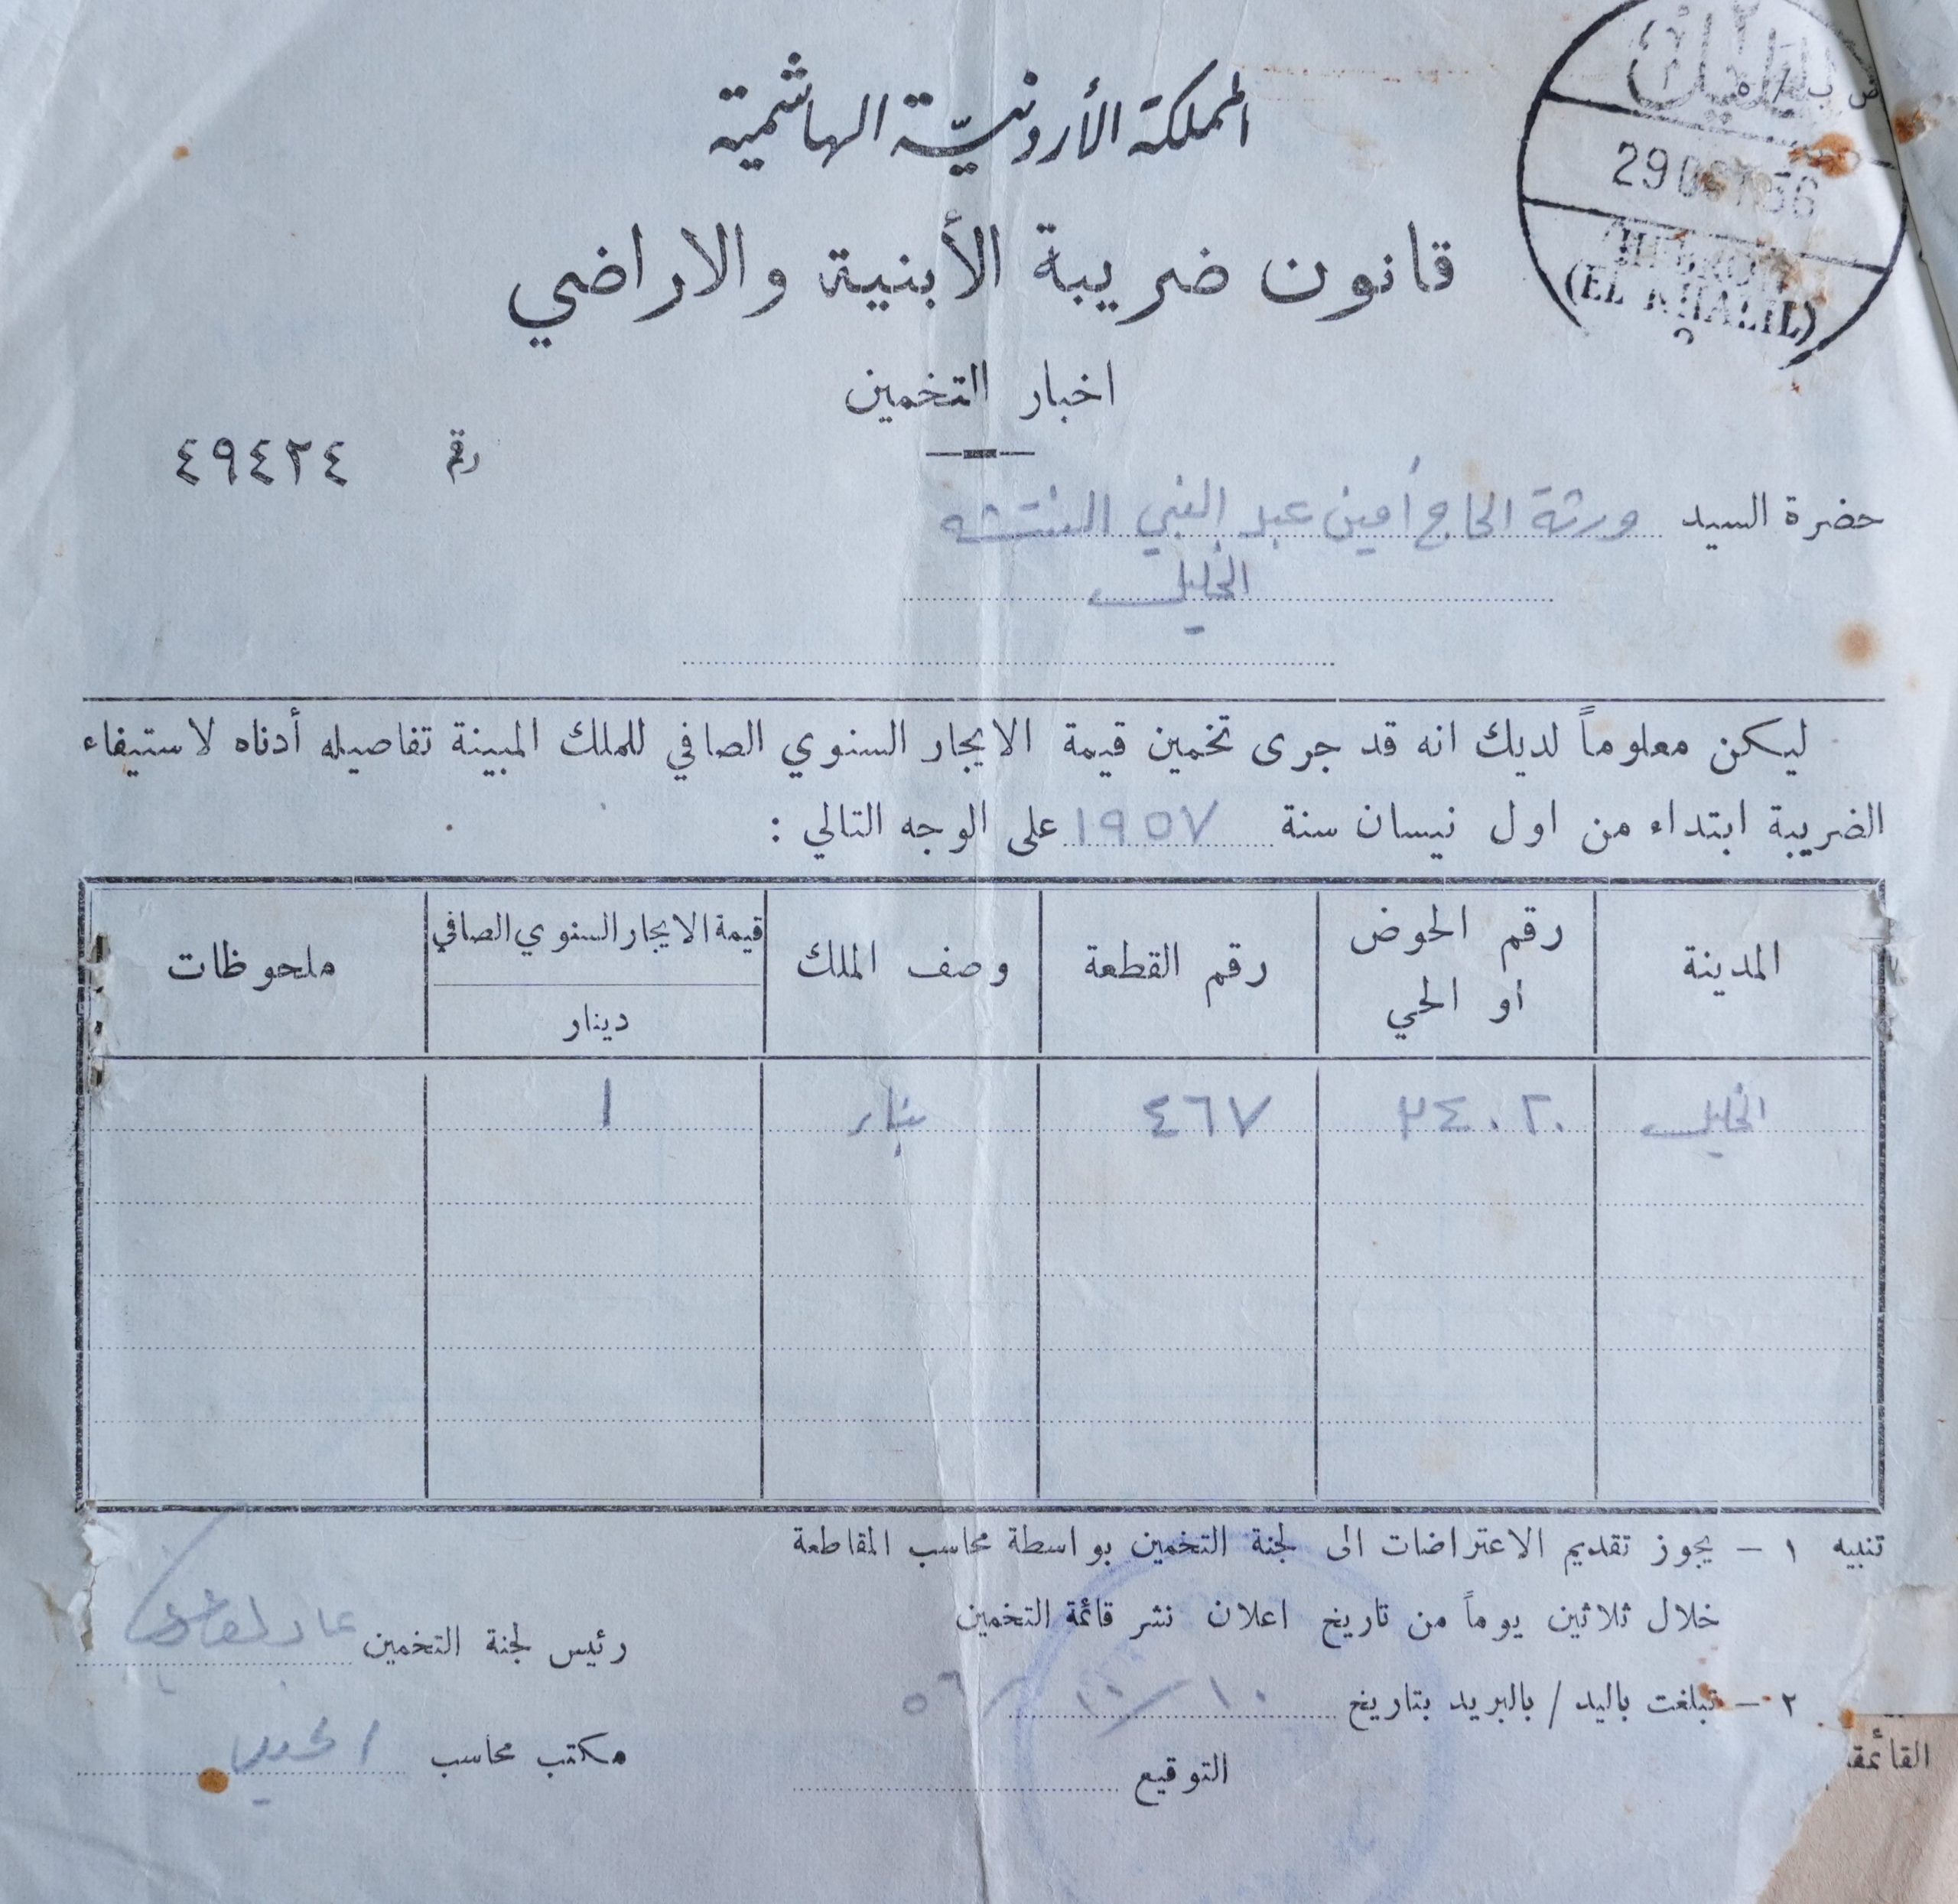 المملكة الأردنيّة الهاشمية
29 OCT 56
HEBRON
(EL KHALIL)
قانون ضريبة الأبنية والاراضي
اخبار التخمين
رقم ٤٩٤٢٤
حضرة السيد ورثة الحاج أمين عبد النبي النتشه
الخليل
ليكن معلوماً لديك انه قد جرى تخمين قيمة الايجار السنوي الصافي للملك المبينة تفاصيله أدناه لاستيفاء
الضريبة ابتداء من اول نيسان سنة ١٩٥٧ على الوجه التالي :
المدينة رقم الحوض أو الحي رقم القطعة وصف الملك قيمة الايجار السنوي الصافي دينار ملحوظات
الخليل ٣٤٠٢٠ ٤٦٧ ١
تنبيه ١ – يجوز تقديم الاعتراضات الى لجنة التخمين بواسطة محاسب المقاطعة
خلال ثلاثين يوماً من تاريخ اعلان نشر قائمة التخمين
رئيس لجنة التخمين
٢ – تبلغت باليد / بالبريد بتاريخ ١٠/٢٠/٥٦
مكتب محاسب الخليل
التوقيع
القائمة